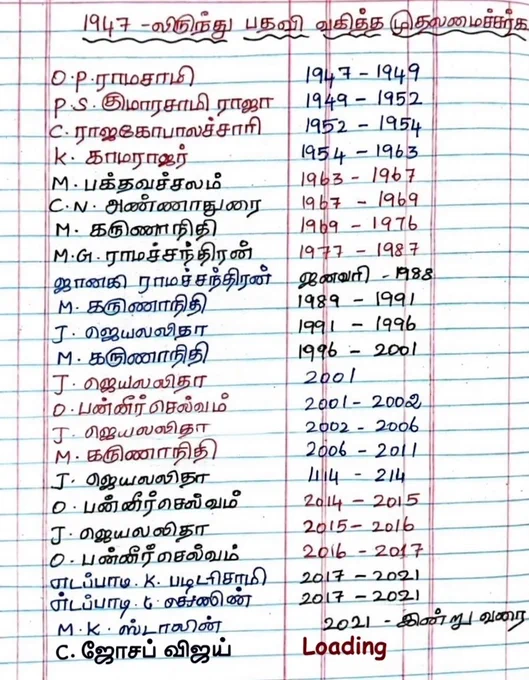 1947 - லிருந்து பதவி வகித்த முதலமைச்சர்க
O.P.ராமசாமி 1947 - 1949
P.S. குமாரசாமி ராஜா 1949 - 1952
C. ராஜகோபாலச்சாரி 1952 - 1954
K. காமராஜர் 1954 - 1963
M. பக்தவச்சலம் 1963 - 1967
C.N. அண்ணாதுரை 1967 - 1969
M. கருணாநிதி 1969 - 1976
M.G. ராமச்சந்திரன் 1977 - 1987
ஜானகி ராமச்சந்திரன் ஜனவரி - 1988
M. கருணாநிதி 1989 - 1991
J. ஜெயலலிதா 1991 - 1996
M. கருணாநிதி 1996 - 2001
J. ஜெயலலிதா 2001
O. பன்னீர்செல்வம் 2001 - 2002
J. ஜெயலலிதா 2002 - 2006
M. கருணாநிதி 2006 - 2011
J. ஜெயலலிதா 414 - 214
O. பன்னீர்செல்வம் 2014 - 2015
J. ஜெயலலிதா 2015 - 2016
O. பன்னீர்செல்வம் 2016 - 2017
எடப்பாடி. K. 2017 - 2021
2017 - 2021
M.K. ஸ்டாலின் 2021 - இன்று வரை
C. ஜோசப் விஜய் Loading